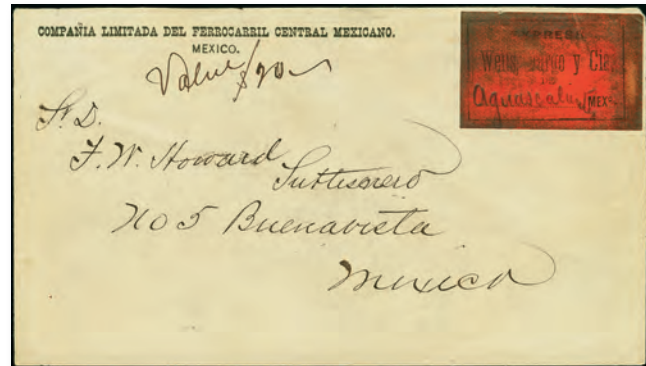 COMPAÑIA LIMITADA DEL FERROCARRIL CENTRAL MEXICANO.
MEXICO.
Value $20
EXPRESO
Wells, Fargo y Cia.
Aguascal MEX.
Sr. D.
F. W. Howard
Subtesorero
No 5 Buenavista
Mexico